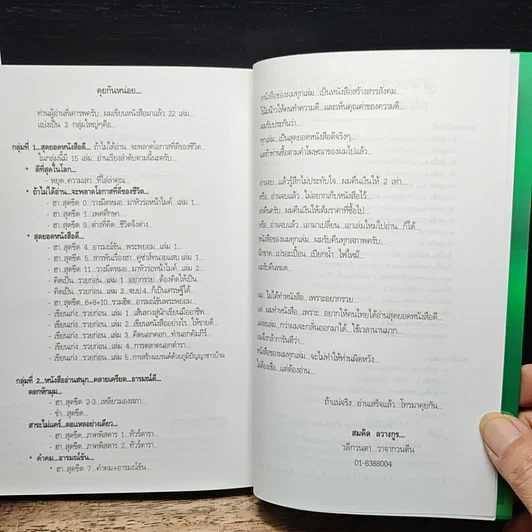 คุยกันหน่อย...
ท่านผู้อ่านที่เคารพครับ...ผมเขียนหนังสือมาแล้ว 22 เล่ม...
แบ่งเป็น 2 กลุ่มใหญ่ๆคือ...
กลุ่มที่ 1...สุดยอดหนังสือดี... ถ้าไม่ได้อ่าน...จะพลาดโอกาสที่ดีของชีวิต...
ในกลุ่มนี้มี 15 เล่ม...อ่านเรียงลำดับตามนี้นะครับ...
* ดีที่สุดในโลก...
- หยุด...ความเลว...ที่ไล่ล่าคุณ...
* ถ้าไม่ได้อ่าน...จะพลาดโอกาสที่ดีของชีวิต...
- ฮา...สุดขีด 9...วางมีดหมอ...มาหัวร่อหน้าไมค์...เล่ม 1...
- ฮา...สุดขีด 1...เพศศึกษา...
- ฮา...สุดขีด 9...ด่าส์ที่คิด...ชีวิตจึงต่าง...
* สุดยอดหนังสือดี...
- ฮา...สุดขีด 4...อารมณ์ขัน...พระพยอม...เล่ม 1...
- ฮา...สุดขีด 5...สารพันเรื่องฮา...คู่ซ้าส์ทนายแสบ เล่ม 1...
- ฮา...สุดขีด 11...วางมีดหมอ...มาหัวร่อหน้าไมค์...เล่ม 2...
- คิดเป็น...รวยก่อน...เล่ม 1...อยากรวย...ต้องคิดให้เป็น...
- คิดเป็น...รวยก่อน...เล่ม 2...จบป.4...ก็เป็นเศรษฐีได้...
- ฮา...สุดขีด...6+8+10...รวมฮิต...อารมณ์ขันพระพยอม...
- เขียนเก่ง...รวยก่อน...เล่ม 1...เส้นทางสู่นักเขียนมืออาชีพ...
- เขียนเก่ง...รวยก่อน...เล่ม 2...เขียนหนังสืออย่างไร...ให้ขายดี...
- เขียนเก่ง...รวยก่อน...เล่ม 3...คิดนอกคอก...ทำนอกคัมภีร์...
- เขียนเก่ง...รวยก่อน...เล่ม 4...การตลาดนอกตำรา...
- เขียนเก่ง...รวยก่อน...เล่ม 5...การสร้างแบรนด์ด้วยภูมิปัญญาชาวบ้าน
กลุ่มที่ 2...หนังสืออ่านสนุก...คลายเครียด...อารมณ์ดี...
ตลกหักมุม...
- ฮา...สุดขีด 2-3...เหลี่ยวมองสภา...
- ขำ...สุดขีด...
สาระไม่แคร์...ตอแหลอย่างเดียว...
- ฮา...สุดขีด...ภาคพิสดาร 1...ทัวร์ดารา...
- ฮา...สุดขีด...ภาคพิสดาร 2...ทัวร์ดารา...
* คำคม...อารมณ์ขัน...
* ฮา...สุดขีด 7...คำคม+อารมณ์ขัน...
หนังสือของผมทุกเล่ม...เป็นหนังสือสร้างสรรสังคม...
โน้มน้าวให้คนทำความดี...และเห็นคุณค่าของความดี...
ผมรับประกันว่า...
ทุกเล่ม...เป็นสุดยอดหนังสือดีจริงๆ...
แต่ถ้าท่านซื้อตามคำโฆษณาของผมไปแล้ว...
อ่านจบ...แล้วรู้สึกไม่ประทับใจ...ผมคืนเงินให้ 2 เท่า...
หรือ...อ่านจบแล้ว...ไม่อยากเก็บหนังสือไว้...
ส่งคืนครับ...ผมคืนเงินให้เต็มราคาที่ซื้อไป...
หรือ...อ่านจบแล้ว...เอามาเปลี่ยน...เอาเล่มใหม่ไปอ่าน...ก็ได้...
หนังสือของผมทุกเล่ม...ผมรับคืนทุกสภาพครับ...
ฉีกขาด...เปรอะเปื้อน...เปียกน้ำ...ไฟไหม้...
ผมรับคืนหมด...
ผม...ไม่ได้ทำหนังสือ...เพราะอยากรวย...
แต่...ผมทำหนังสือ...เพราะ...อยากให้คนไทยได้อ่านสุดยอดหนังสือดี...
และ...กว่าผมจะกลั่นออกมาได้...ใช้เวลานานมาก...
ผมจึงกล้าการันตีว่า...
หนังสือของผมทุกเล่ม...จะไม่ทำให้ท่านผิดหวัง...
ไม่ต้องเชื่อ...แต่ต้องอ่าน...
ถ้าแน่จริง...อ่านเสร็จแล้ว...โทรมาคุยกัน...
สมคิด ลวางกูร...
วลีกวนตา...วาจากวนตีน
01-6388004